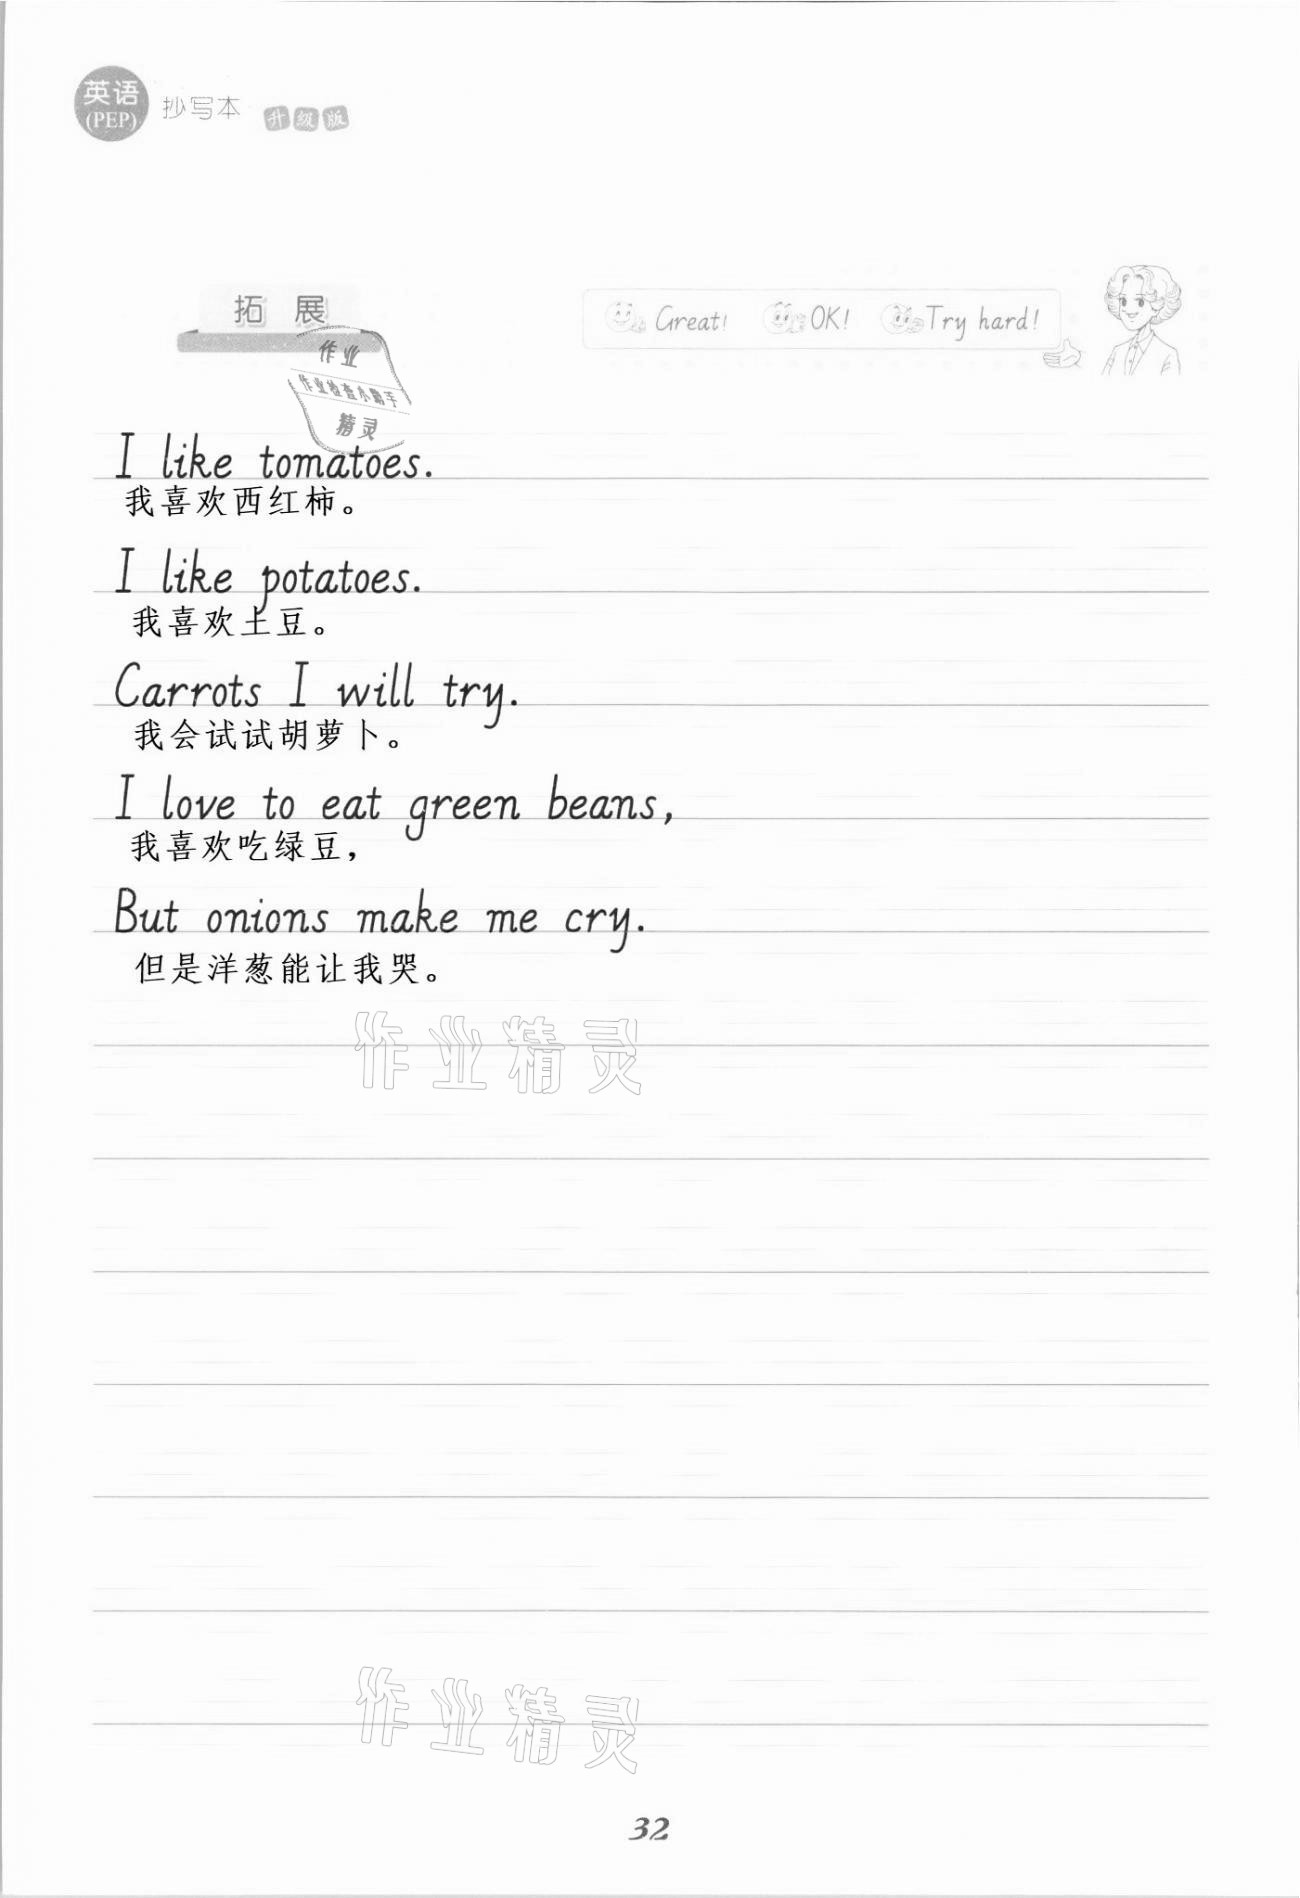 英语
(PEP)
抄写本
升级版
拓 展
Great!
OK!
Try hard!
作业
作业检查小助手
精灵
I like tomatoes.
我喜欢西红柿。
I like potatoes.
我喜欢土豆。
Carrots I will try.
我会试试胡萝卜。
I love to eat green beans,
我喜欢吃绿豆，
But onions make me cry.
但是洋葱能让我哭。
作业精灵
作业精灵
32